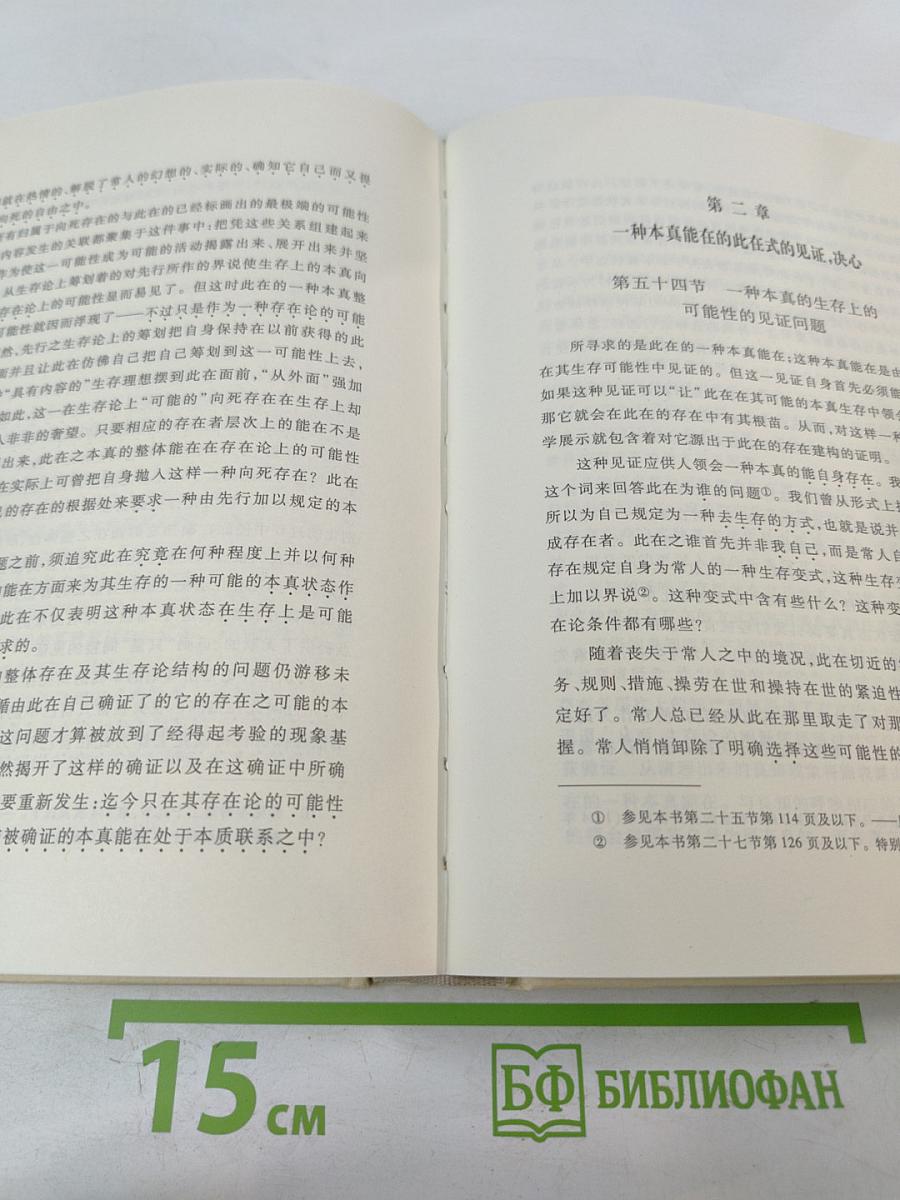 就在热情的、解脱了常人的幻想的、实际的、确知它自己而又畏
向死的自由之中。
有归属于向死存在的与此在的已经标画出的最极端的可能性
内容发生的关联都聚集于这件事中:把凭这些关系组建起来
作为使这一可能性成为可能的活动揭露出来、展开出来并坚
从生存论上筹划着的对先行所作的界说使生存上的本真向
存在论上的可能性显而易见了。但这时此在的一种本真整
可能性就因而浮现了——不过只是作为一种存在论的可能
然,先行之生存论上的筹划把自身保持在以前获得的此
面并且让此在仿佛自己把自己筹划到这一可能性上去,
“具有内容的”生存理想摆到此在面前,“从外面”强加
如此,这一在生存论上“可能的”向死存在在生存上却
人非非的奢望。只要相应的存在者层次上的能在不是
出来,此在之本真的整体能在在存在论上的可能性
在实际上可曾把自身抛入这样一种向死存在?此在
的存在的根据处来要求一种由先行加以规定的本
题之前,须追究此在究竟在何种程度上并以何种
能在方面来为其生存的一种可能的本真状态作
此在不仅表明这种本真状态在生存上是可能
求的。
整体存在及其生存论结构的问题仍游移未
循由此在自己确证了的它的存在之可能的本
这问题才算被放到了经得起考验的现象基
然揭开了这样的确证以及在这确证中所确
要重新发生:迄今只在其存在论的可能性
被确证的本真能在处于本质联系之中?
第二章
一种本真能在的此在式的见证,决心
第五十四节 一种本真的生存上的
可能性的见证问题
所寻求的是此在的一种本真能在;这种本真能在是由
在其生存可能性中见证的。但这一见证自身首先必须能
如果这种见证可以“让”此在在其可能的本真生存中领会
那它就会在此在的存在中有其根苗。从而,对这样一种
学展示就包含着对它源出于此在的存在建构的证明。
这种见证应供人领会一种本真的能自身存在。我
这个词来回答此在为谁的问题①。我们曾从形式上把
所以为自己规定为一种去生存的方式,也就是说并
成存在者。此在之谁首先并非我自己,而是常人自
存在规定自身为常人的一种生存变式,这种生存变
上加以界说②。这种变式中含有些什么?这种变
在论条件都有哪些?
随着丧失于常人之中的境况,此在切近的
务、规则、措施、操劳在世和操持在世的紧迫性
定好了。常人总已经从此在那里取走了对那
握。常人悄悄卸除了明确选择这些可能性的
① 参见本书第二十五节第114页及以下。——
② 参见本书第二十七节第126页及以下。特别
15 см
БФ БИБЛИОФАН